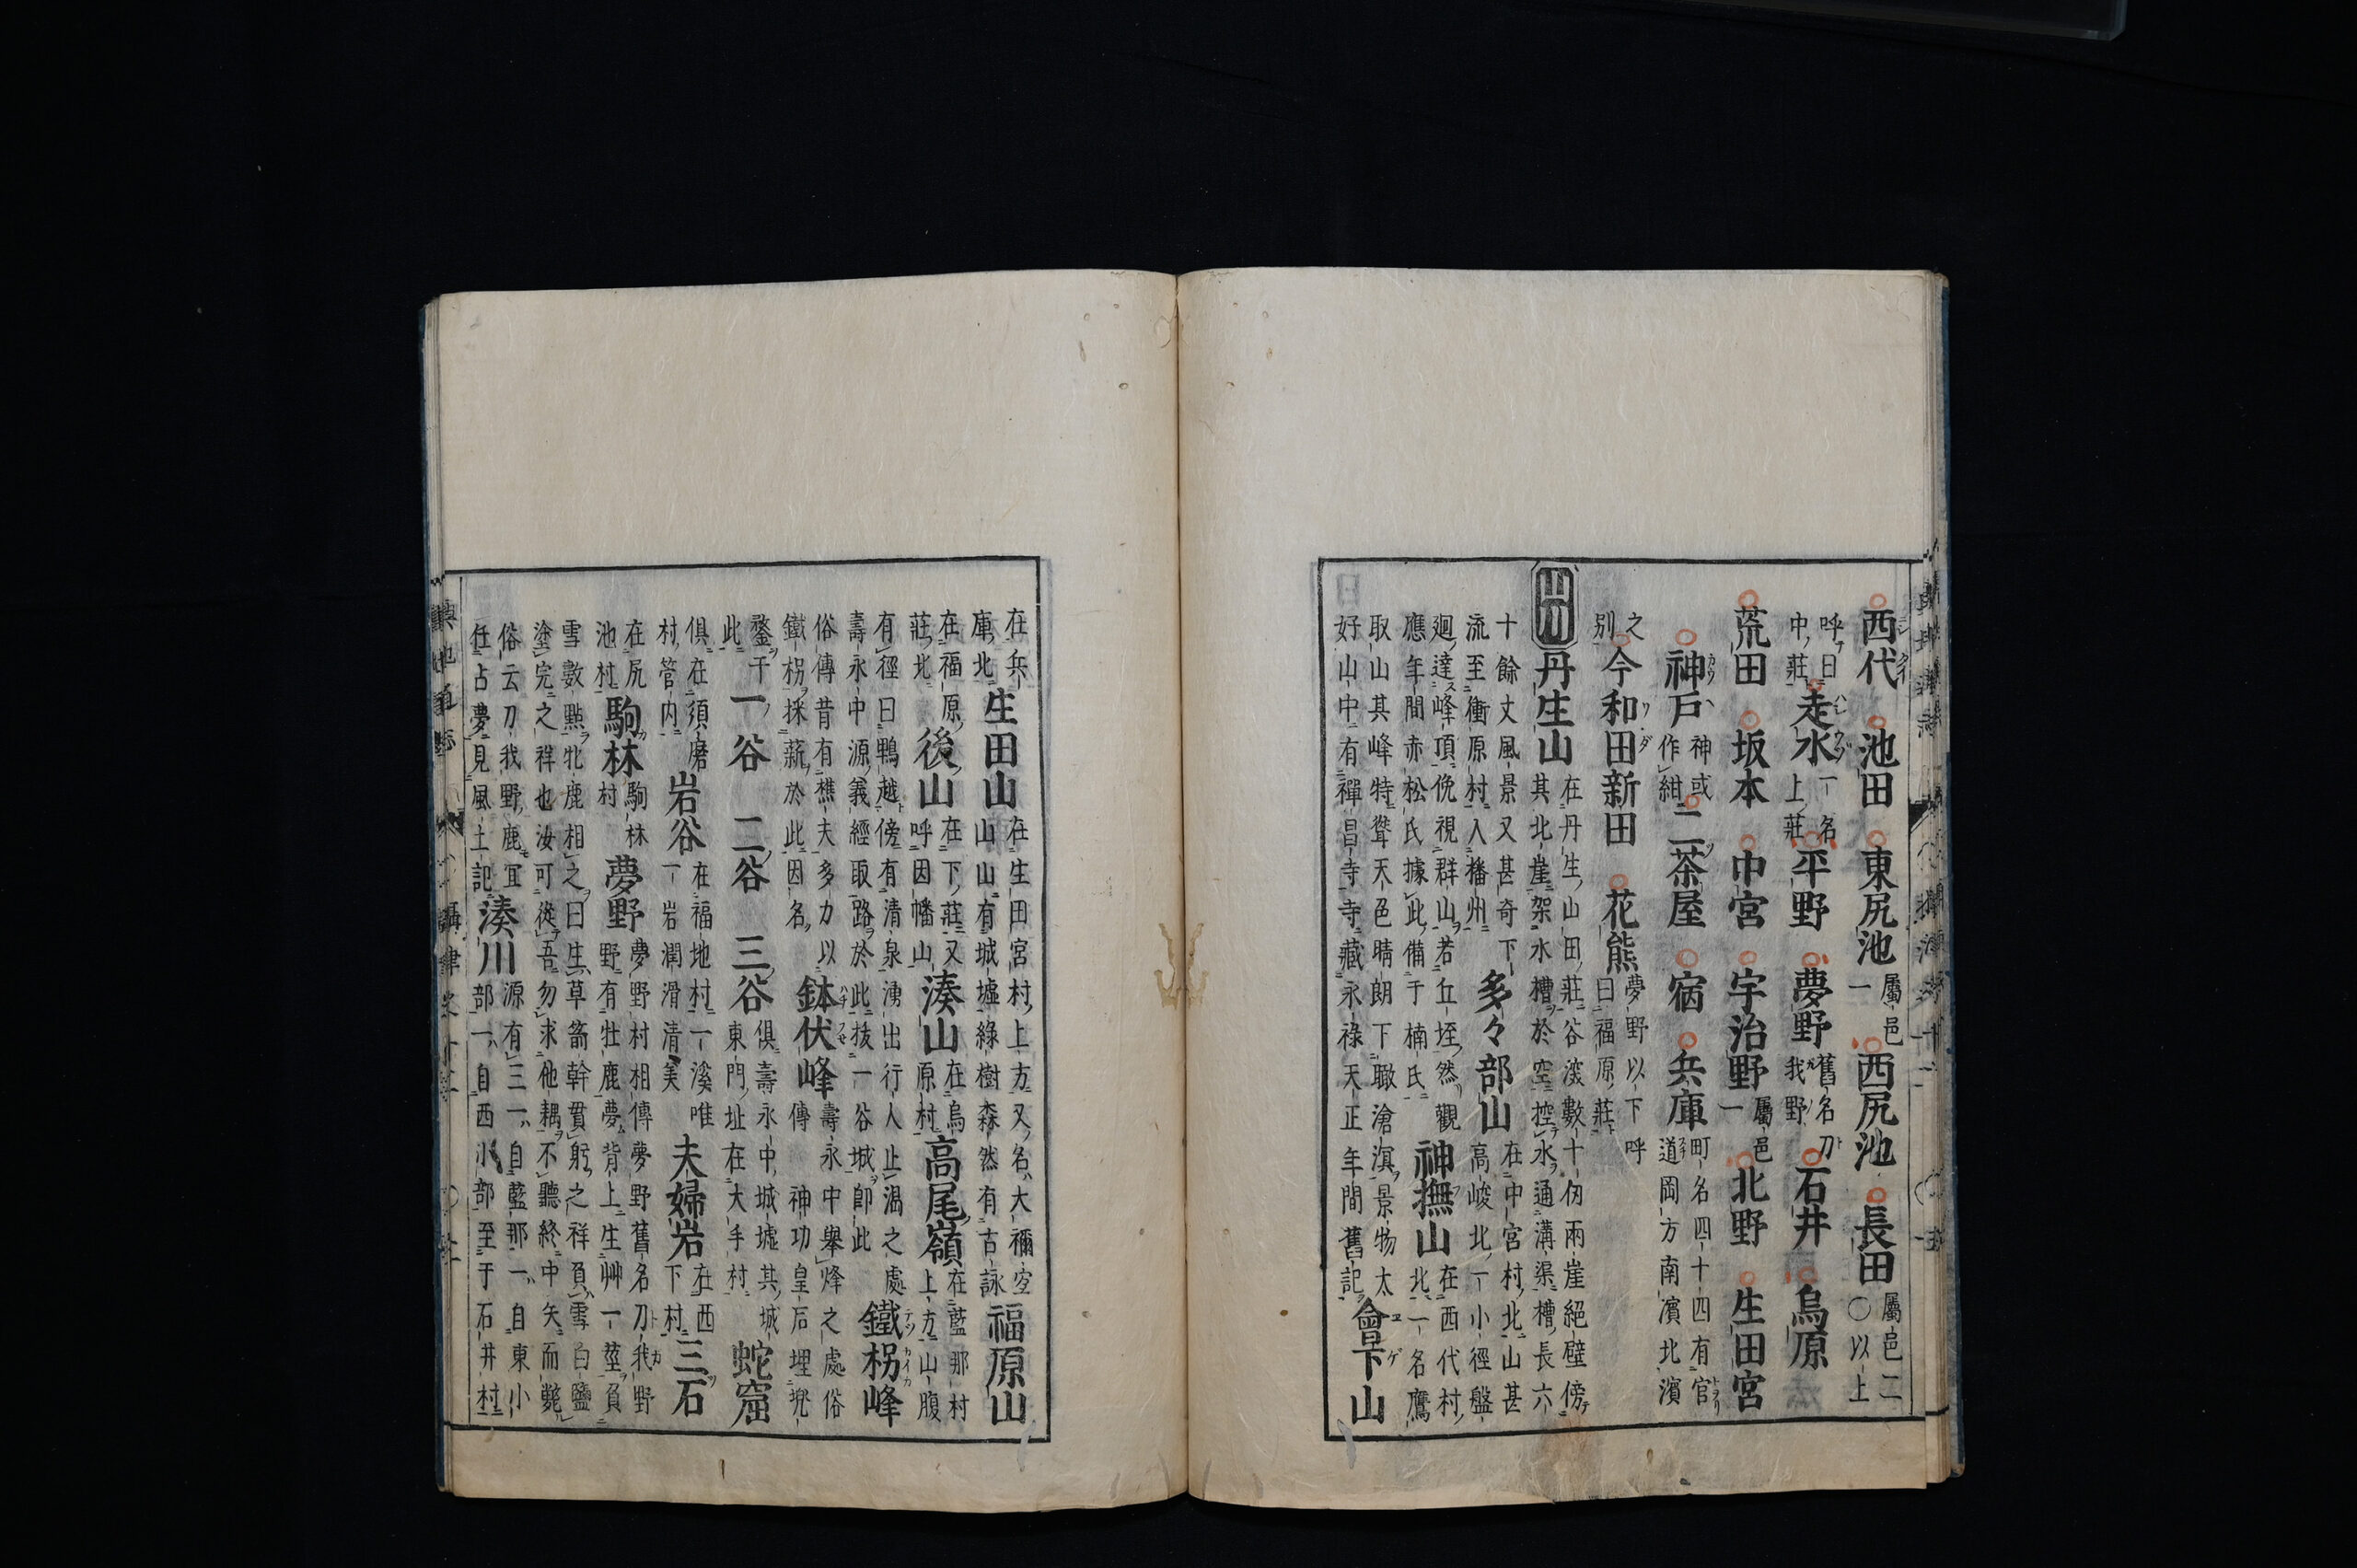 西代　池田　東尻池屬邑一　西尻池　長田屬邑二〇以上
呼曰中莊　走水一名上莊　平野　夢野舊名刀我野　石井　烏原
荒田　坂本　中宮　宇治野屬邑一　北野　生田宮
神戸神或作紺　二茶屋　宿　兵庫町名四十四有官道岡方南濱北濱
之別　今和田新田　花熊夢野以下呼曰福原莊
山川　丹生山在丹生山田莊谷深數十仞兩崖絕壁傍其北崖架水槽於空控水通溝渠槽長六
十餘丈風景又甚奇下流至衝原村入播州　多々部山在中宮村北山甚高峻北一小徑盤
廻達峰頂俛視群山若丘垤然觀應年間赤松氏據此備于楠氏　神撫山在西代村北一名鷹
取山其峰特聳天色晴朗下瞰滄溟景物太好山中有禪昌寺寺藏永祿天正年間舊記　會下山
在兵庫北　生田山在生田宮村上方又名大禰山山有城墟綠樹森然有古詠　福原山
在福原莊北　後山在下莊又呼因幡山　湊山在烏原村　高尾嶺在藍那村上方山腹
有徑曰鵯越傍有清泉湧出行人止渴之處壽永中源義經取路於此拔一谷城即此　鐵柺峰
俗傳昔有樵夫多力以鐵柺採薪於此因名　鉢伏峰壽永中舉烽之處俗傳神功皇后埋兜
鍪于此　一谷　二谷　三谷俱壽永中城墟其城東門址在大手村　蛇窟
俱在須磨村管内　岩谷在福地村一溪唯一岩潤滑清美　夫婦岩在西下村　三石
在尻池村　駒林駒林村　夢野夢野村相傳夢野舊名刀我野野有牡鹿夢背上生艸一莖負
雪數點牝鹿相之曰生草箭幹貫躬之祥負雪白鹽塗完之祥也汝可從吾勿求他耦不聽終中矢而斃
俗云刀我野鹿宜任占夢見風土記　湊川源有三一自藍那一自東小部一自西小部至于石井村